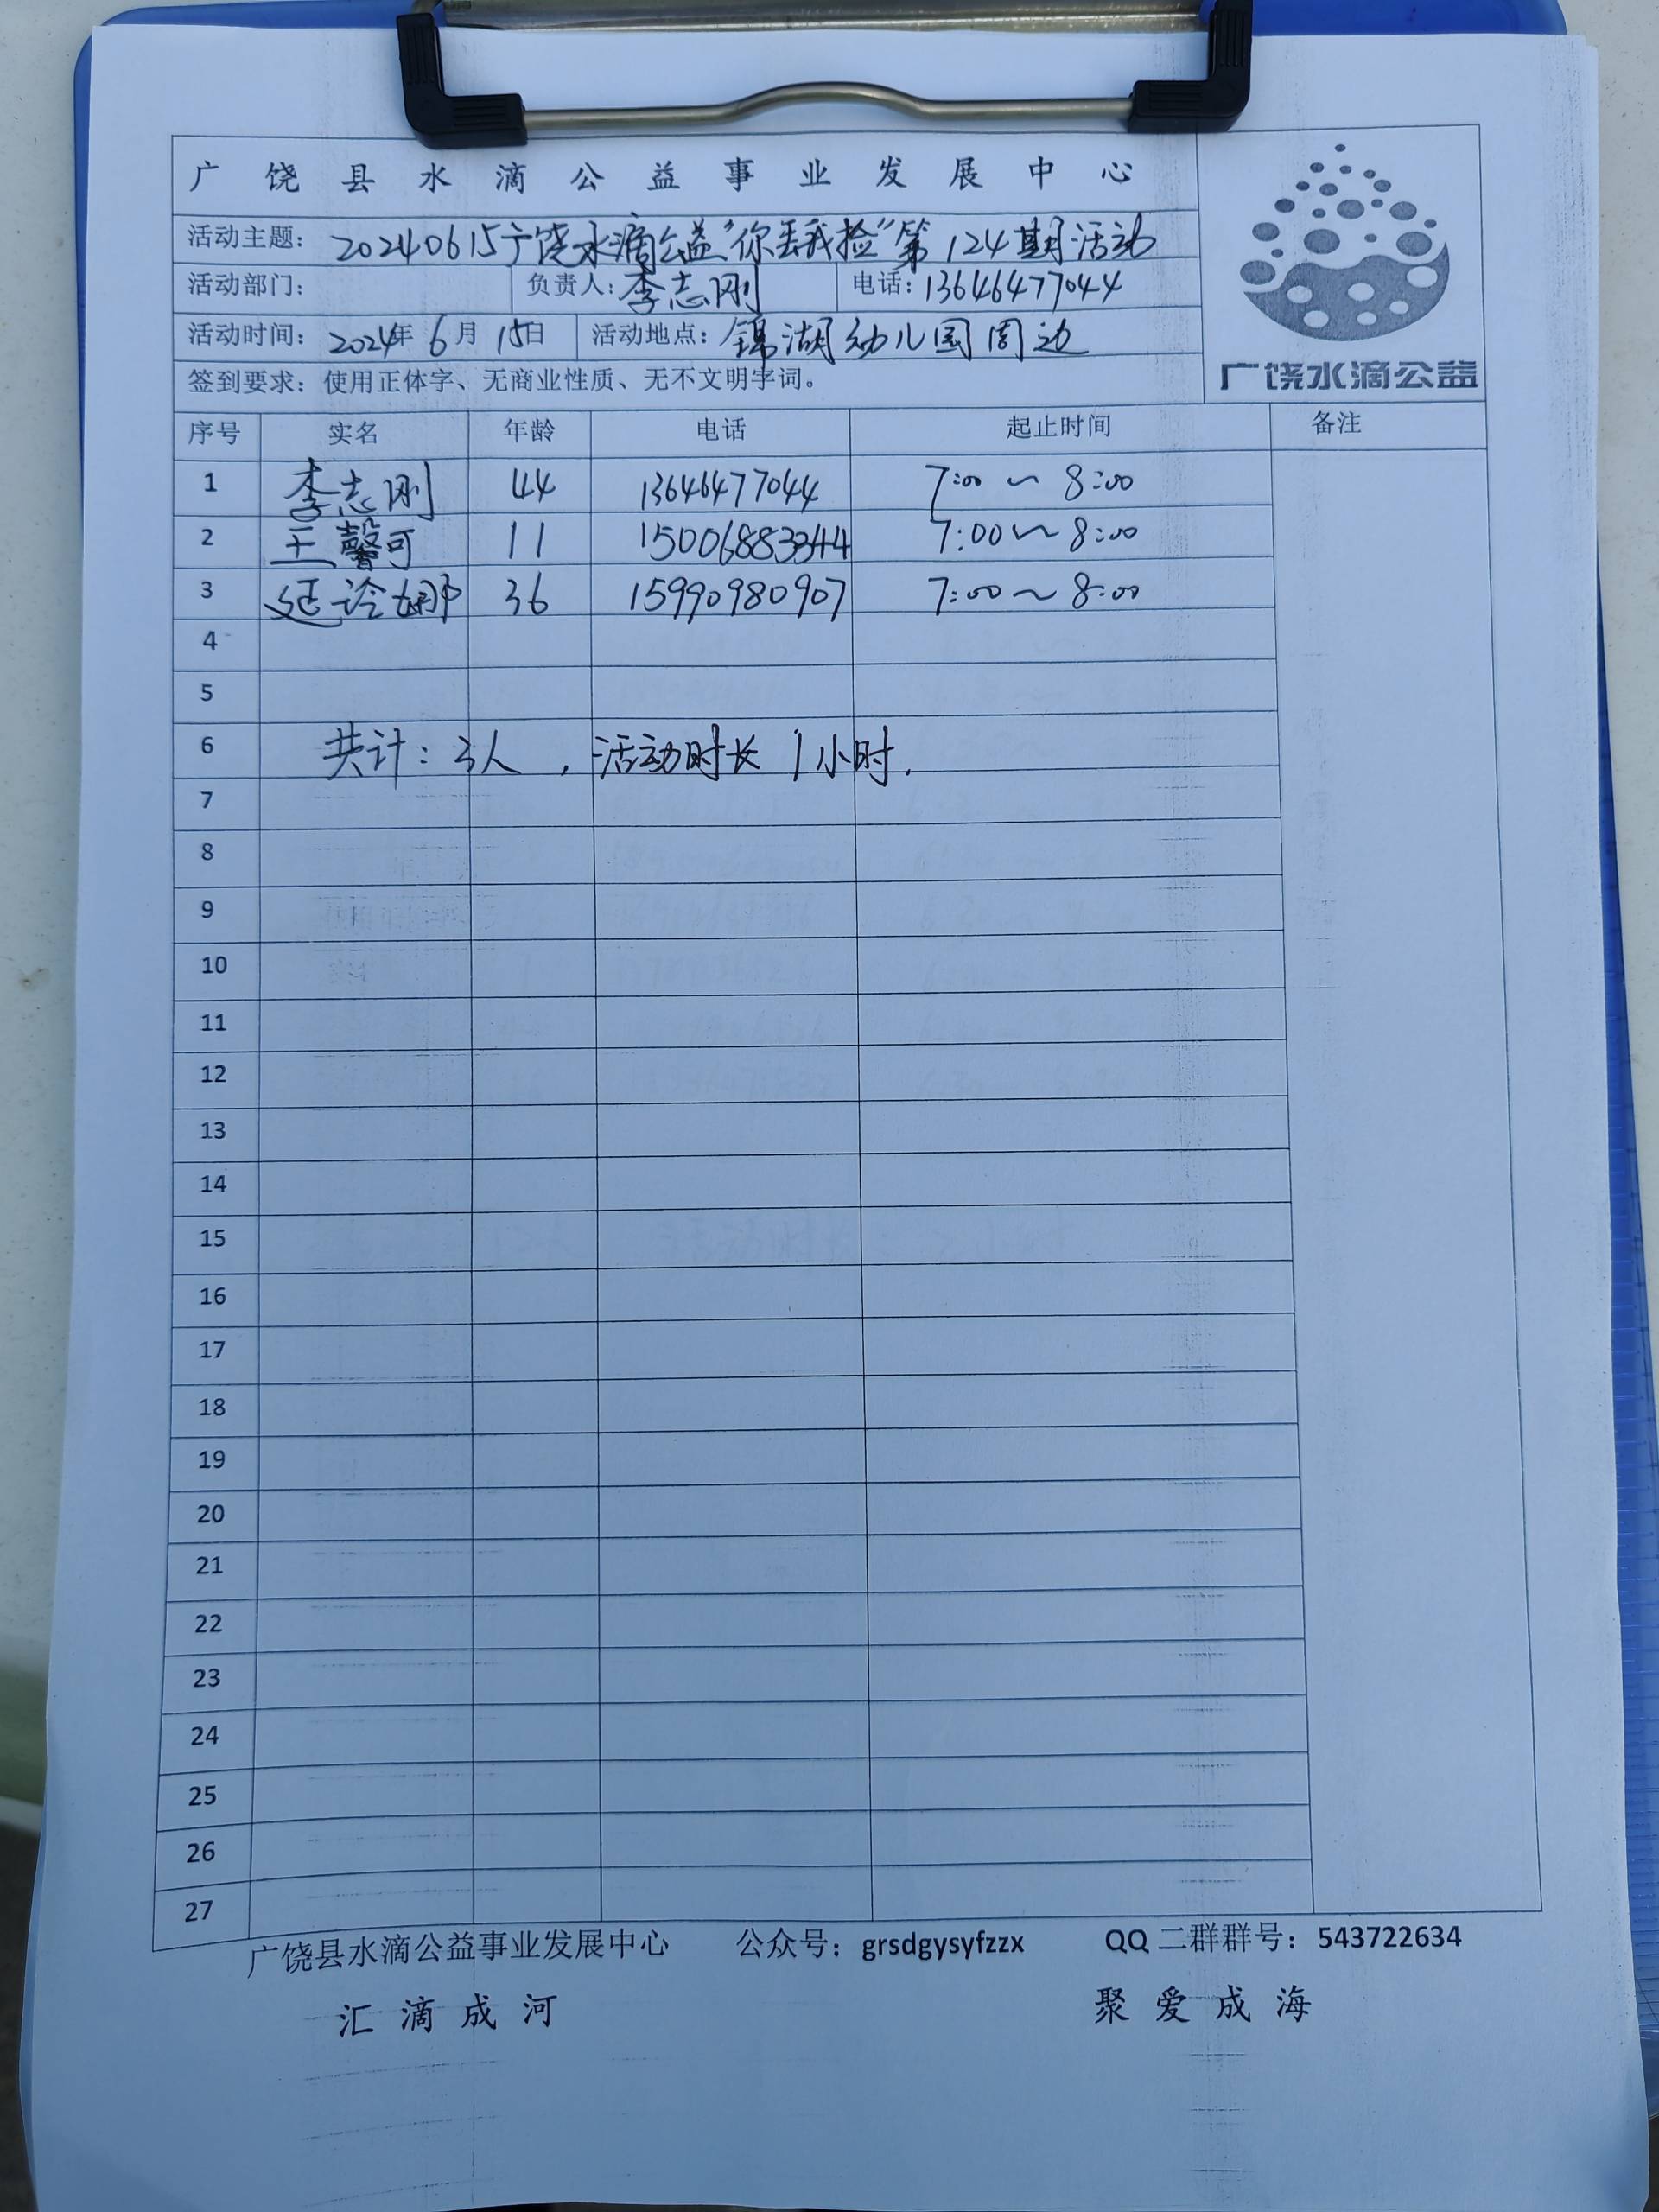 广饶县水滴公益事业发展中心
活动主题：20240615广饶水滴公益“你丢我捡”第124期活动
活动部门： 负责人：李志刚 电话：13646477044
活动时间：2024年6月15日 活动地点：锦湖幼儿园周边
签到要求：使用正体字、无商业性质、无不文明字词。
广饶水滴公益
序号 实名 年龄 电话 起止时间 备注
1 李志刚 44 13646477044 7:00～8:00
2 王馨可 11 15006883344 7:00～8:00
3 延冷娜 36 15990980907 7:00～8:00
4
5
6 共计：3人，活动时长1小时.
7
8
9
10
11
12
13
14
15
16
17
18
19
20
21
22
23
24
25
26
27
广饶县水滴公益事业发展中心 公众号：grsdgysyfzzx QQ二群群号：543722634
汇滴成河 聚爱成海